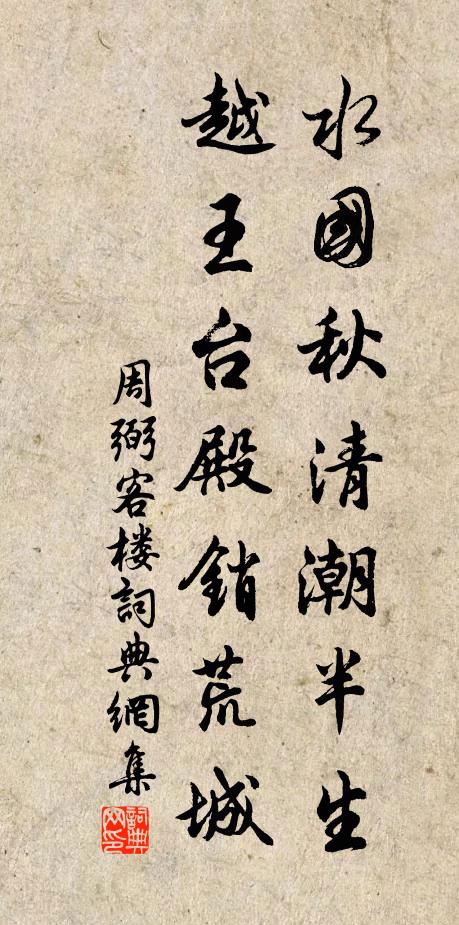 水國秋清潮半生
越王台殿銷荒城
周弼客楼詞典網集
詞典网印